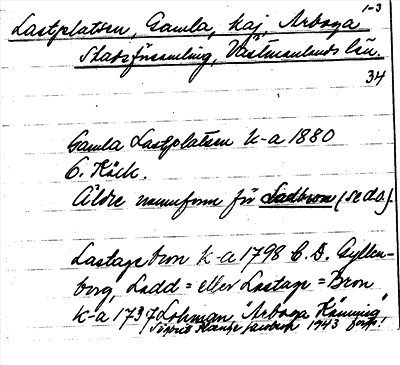 1-3
Lastplatsen, Gamla, kaj, Arboga
Stadsförsamling, Västmanlands län.
34
Gamla Lastplatsen k-a 1880
C. Höck.
Äldre namnform för Ladbron (se d.o.).
Lastage bron k-a 1798 C. D. Gyllen-
borg, Ladd = eller Lastage = Bron
k-a 1737 Lohman, "Arboga Känning",
1943